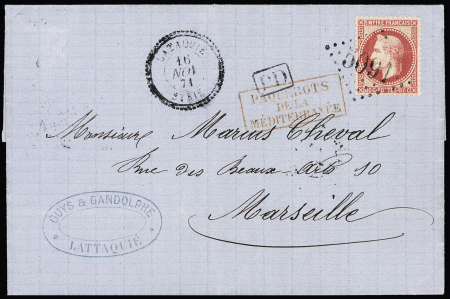 LATAQUIE
16
NOV
71
SYRIE
PD
PAQUEBOTS
DE LA
MÉDITERRANÉE
EMPIRE FRANCAIS
5091
Monsieur Marius Cheval
Rue des Beaux-Arts 10
Marseille
GUYS & GANDOLPHE
LATTAQUIÉ